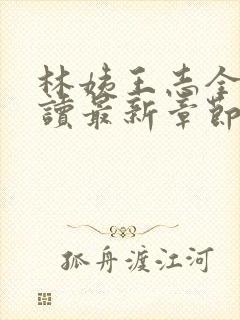 林姨王志全
讀最新章節
孤舟渡江河